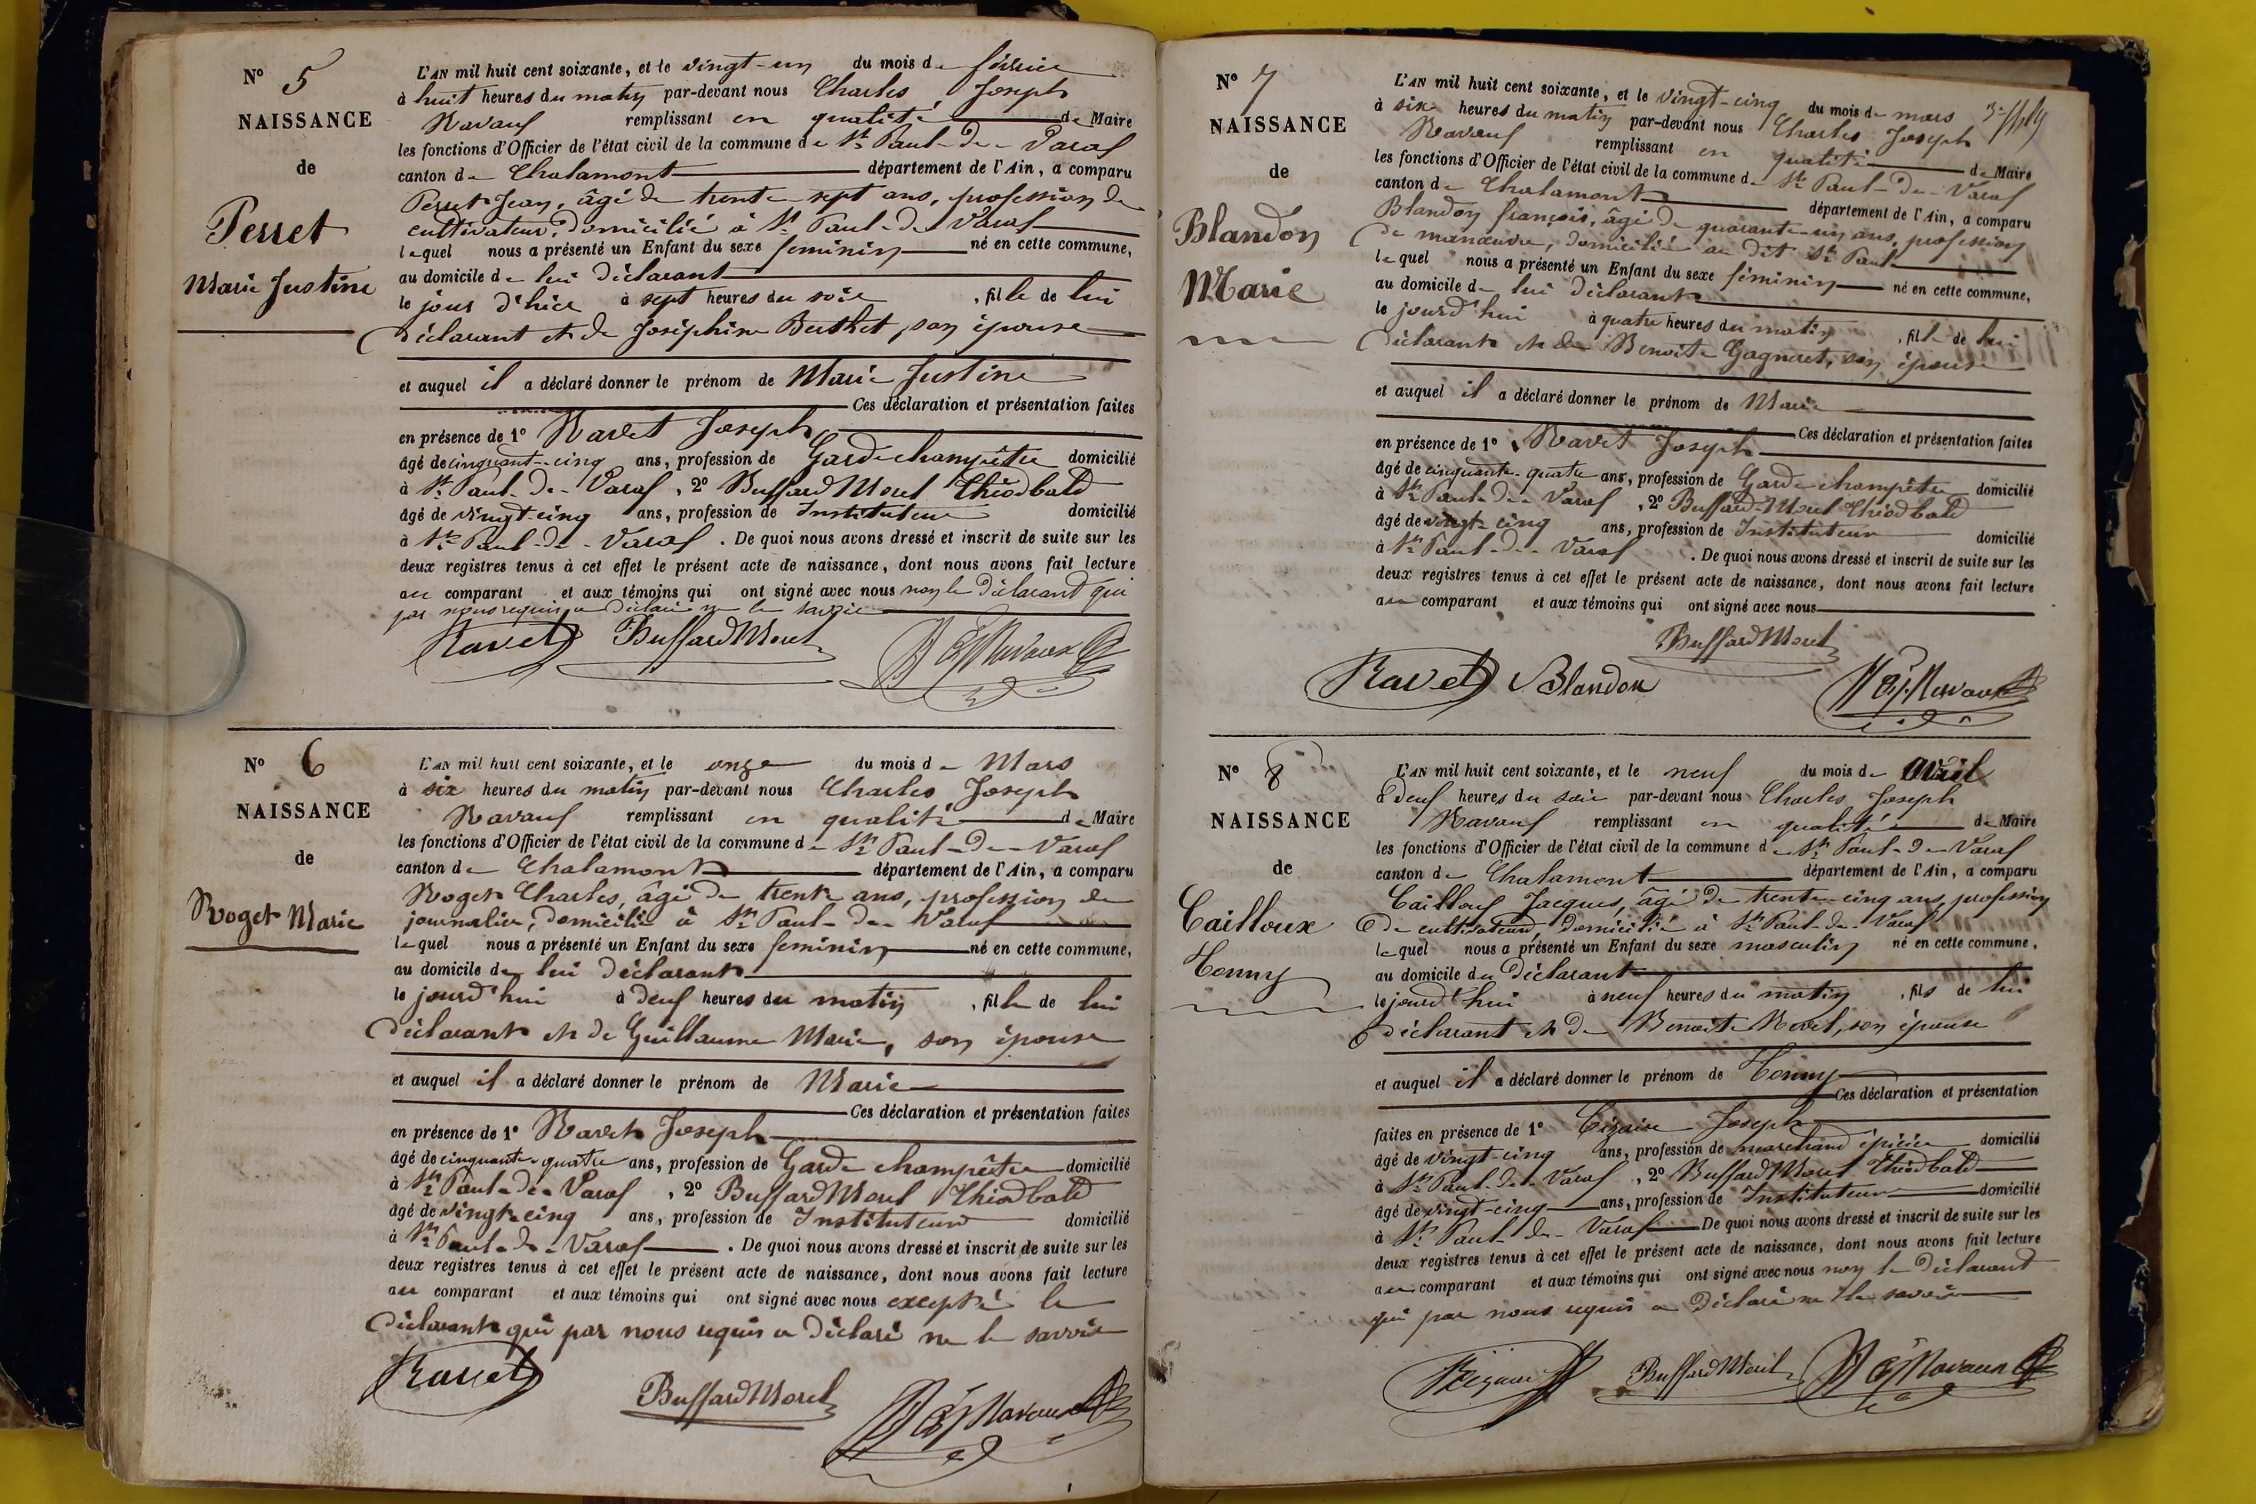 N° 5
NAISSANCE
de
Perret
Marie Justine
L'AN mil huit cent soixante, et le vingt-un du mois de février
à huit heures du matin par-devant nous Charles Joseph
Ravaux remplissant en qualité de Maire
les fonctions d'Officier de l'état civil de la commune de St Paul-de-Varax
canton de Chalamont département de l'Ain, a comparu
Perret Jean, âgé de trente-sept ans, profession de
cultivateur, domicilié à St Paul-de-Varax
lequel nous a présenté un Enfant du sexe féminin né en cette commune,
au domicile de lui déclarant
le jour d'hier à sept heures du soir, fille de lui
déclarant et de Joséphine Berthet, son épouse
et auquel il a déclaré donner le prénom de Marie Justine
Ces déclaration et présentation faites
en présence de 1° Ravet Joseph
âgé de cinquant-cinq ans, profession de Garde champêtre domicilié
à St Paul-de-Varax, 2° Buffard Morel Théodbald
âgé de vingt-cinq ans, profession de Instituteur domicilié
à St Paul-de-Varax. De quoi nous avons dressé et inscrit de suite sur les
deux registres tenus à cet effet le présent acte de naissance, dont nous avons fait lecture
au comparant et aux témoins qui ont signé avec nous non le déclarant qui
par nous requis a déclaré ne le savoir
Ravet BuffardMorel Ravaux
N° 6
NAISSANCE
de
Roget Marie
L'AN mil huit cent soixante, et le onze du mois de Mars
à six heures du matin par-devant nous Charles Joseph
Ravaux remplissant en qualité de Maire
les fonctions d'Officier de l'état civil de la commune de St Paul-de-Varax
canton de Chalamont département de l'Ain, a comparu
Roget Charles, âgé de trente ans, profession de
journalier, domicilié à St Paul-de-Varax
lequel nous a présenté un Enfant du sexe féminin né en cette commune,
au domicile de lui déclarant
le jourd'hui à deux heures du matin, fille de lui
déclarant et de Guillaume Marie, son épouse
et auquel il a déclaré donner le prénom de Marie
Ces déclaration et présentation faites
en présence de 1° Ravet Joseph
âgé de cinquante-quatre ans, profession de Garde champêtre domicilié
à St Paul-de-Varax, 2° Buffard Morel Théodbald
âgé de vingt-cinq ans, profession de Instituteur domicilié
à St Paul-de-Varax. De quoi nous avons dressé et inscrit de suite sur les
deux registres tenus à cet effet le présent acte de naissance, dont nous avons fait lecture
au comparant et aux témoins qui ont signé avec nous excepté le
déclarant qui par nous requis a déclaré ne le savoir
Ravet
BuffardMorel Ravaux
N° 7
NAISSANCE
de
Blandon
Marie
L'AN mil huit cent soixante, et le vingt-cinq du mois de mars
à six heures du matin par-devant nous Charles Joseph
Ravaux remplissant en qualité de Maire
les fonctions d'Officier de l'état civil de la commune de St Paul-de-Varax
canton de Chalamont département de l'Ain, a comparu
Blandon françois, âgé de quarante-un ans, profession
de manœuvre, domicilié au dit St Paul
lequel nous a présenté un Enfant du sexe féminin né en cette commune,
au domicile de lui déclarant
le jourd'hui à quatre heures du matin, fille de lui
déclarant et de Benoite Gagneret, son épouse
et auquel il a déclaré donner le prénom de Marie
Ces déclaration et présentation faites
en présence de 1° Ravet Joseph
âgé de cinquante-quatre ans, profession de Garde champêtre domicilié
à St Paul-de-Varax, 2° Buffard-Morel Théodbald
âgé de vingt-cinq ans, profession de Instituteur domicilié
à St Paul-de-Varax. De quoi nous avons dressé et inscrit de suite sur les
deux registres tenus à cet effet le présent acte de naissance, dont nous avons fait lecture
au comparant et aux témoins qui ont signé avec nous
BuffardMorel
Ravet Blandon Ravaux
N° 8
NAISSANCE
de
Cailloux
Tonny
L'AN mil huit cent soixante, et le neuf du mois de Avril
à deux heures du soir par-devant nous Charles Joseph
Ravaux remplissant en qualité de Maire
les fonctions d'Officier de l'état civil de la commune de St Paul-de-Varax
canton de Chalamont département de l'Ain, a comparu
Cailloux Jacques, âgé de trente-cinq ans, profession
de cultivateur, domicilié à St Paul-de-Varax
lequel nous a présenté un Enfant du sexe masculin né en cette commune,
au domicile du déclarant
le jourd'hui à neuf heures du matin, fils de lui
déclarant et de Benoite Morel, son épouse
et auquel il a déclaré donner le prénom de Tonny
Ces déclaration et présentation
faites en présence de 1° Joseph
âgé de vingt cinq ans, profession de marchand épicier domicilié
à St Paul-de-Varax, 2° Buffard Morel Théodbald
âgé de vingt-cinq ans, profession de Instituteur domicilié
à St Paul-de-Varax De quoi nous avons dressé et inscrit de suite sur les
deux registres tenus à cet effet le présent acte de naissance, dont nous avons fait lecture
au comparant et aux témoins qui ont signé avec nous non le déclarant
qui par nous requis a déclaré ne le savoir
BuffardMorel Ravaux